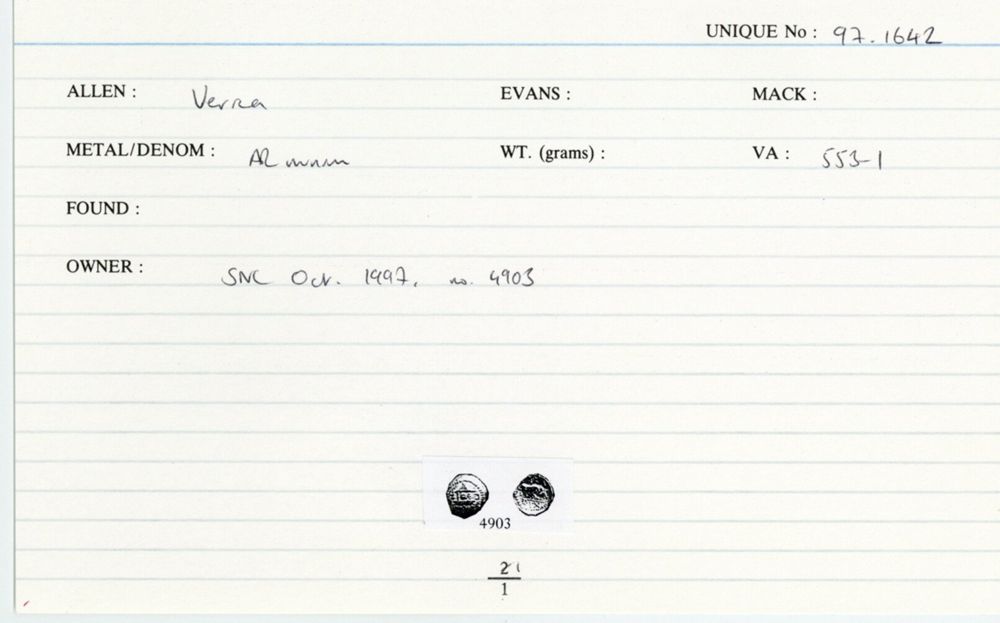 UNIQUE No : 97.1642
ALLEN : Verica EVANS : MACK :
METAL/DENOM : AR minim WT. (grams) : VA : 553-1
FOUND :
OWNER : SNC Oct. 1997, no. 4903
4903
21
1